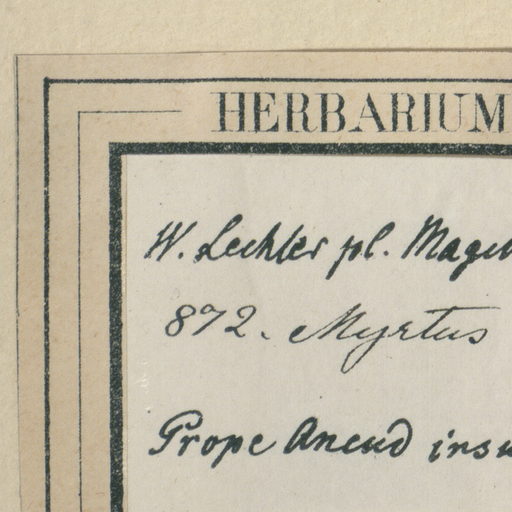 HERBARIUM
W. Lechler pl. Magell
872. Myrtus
Prope Ancud insu